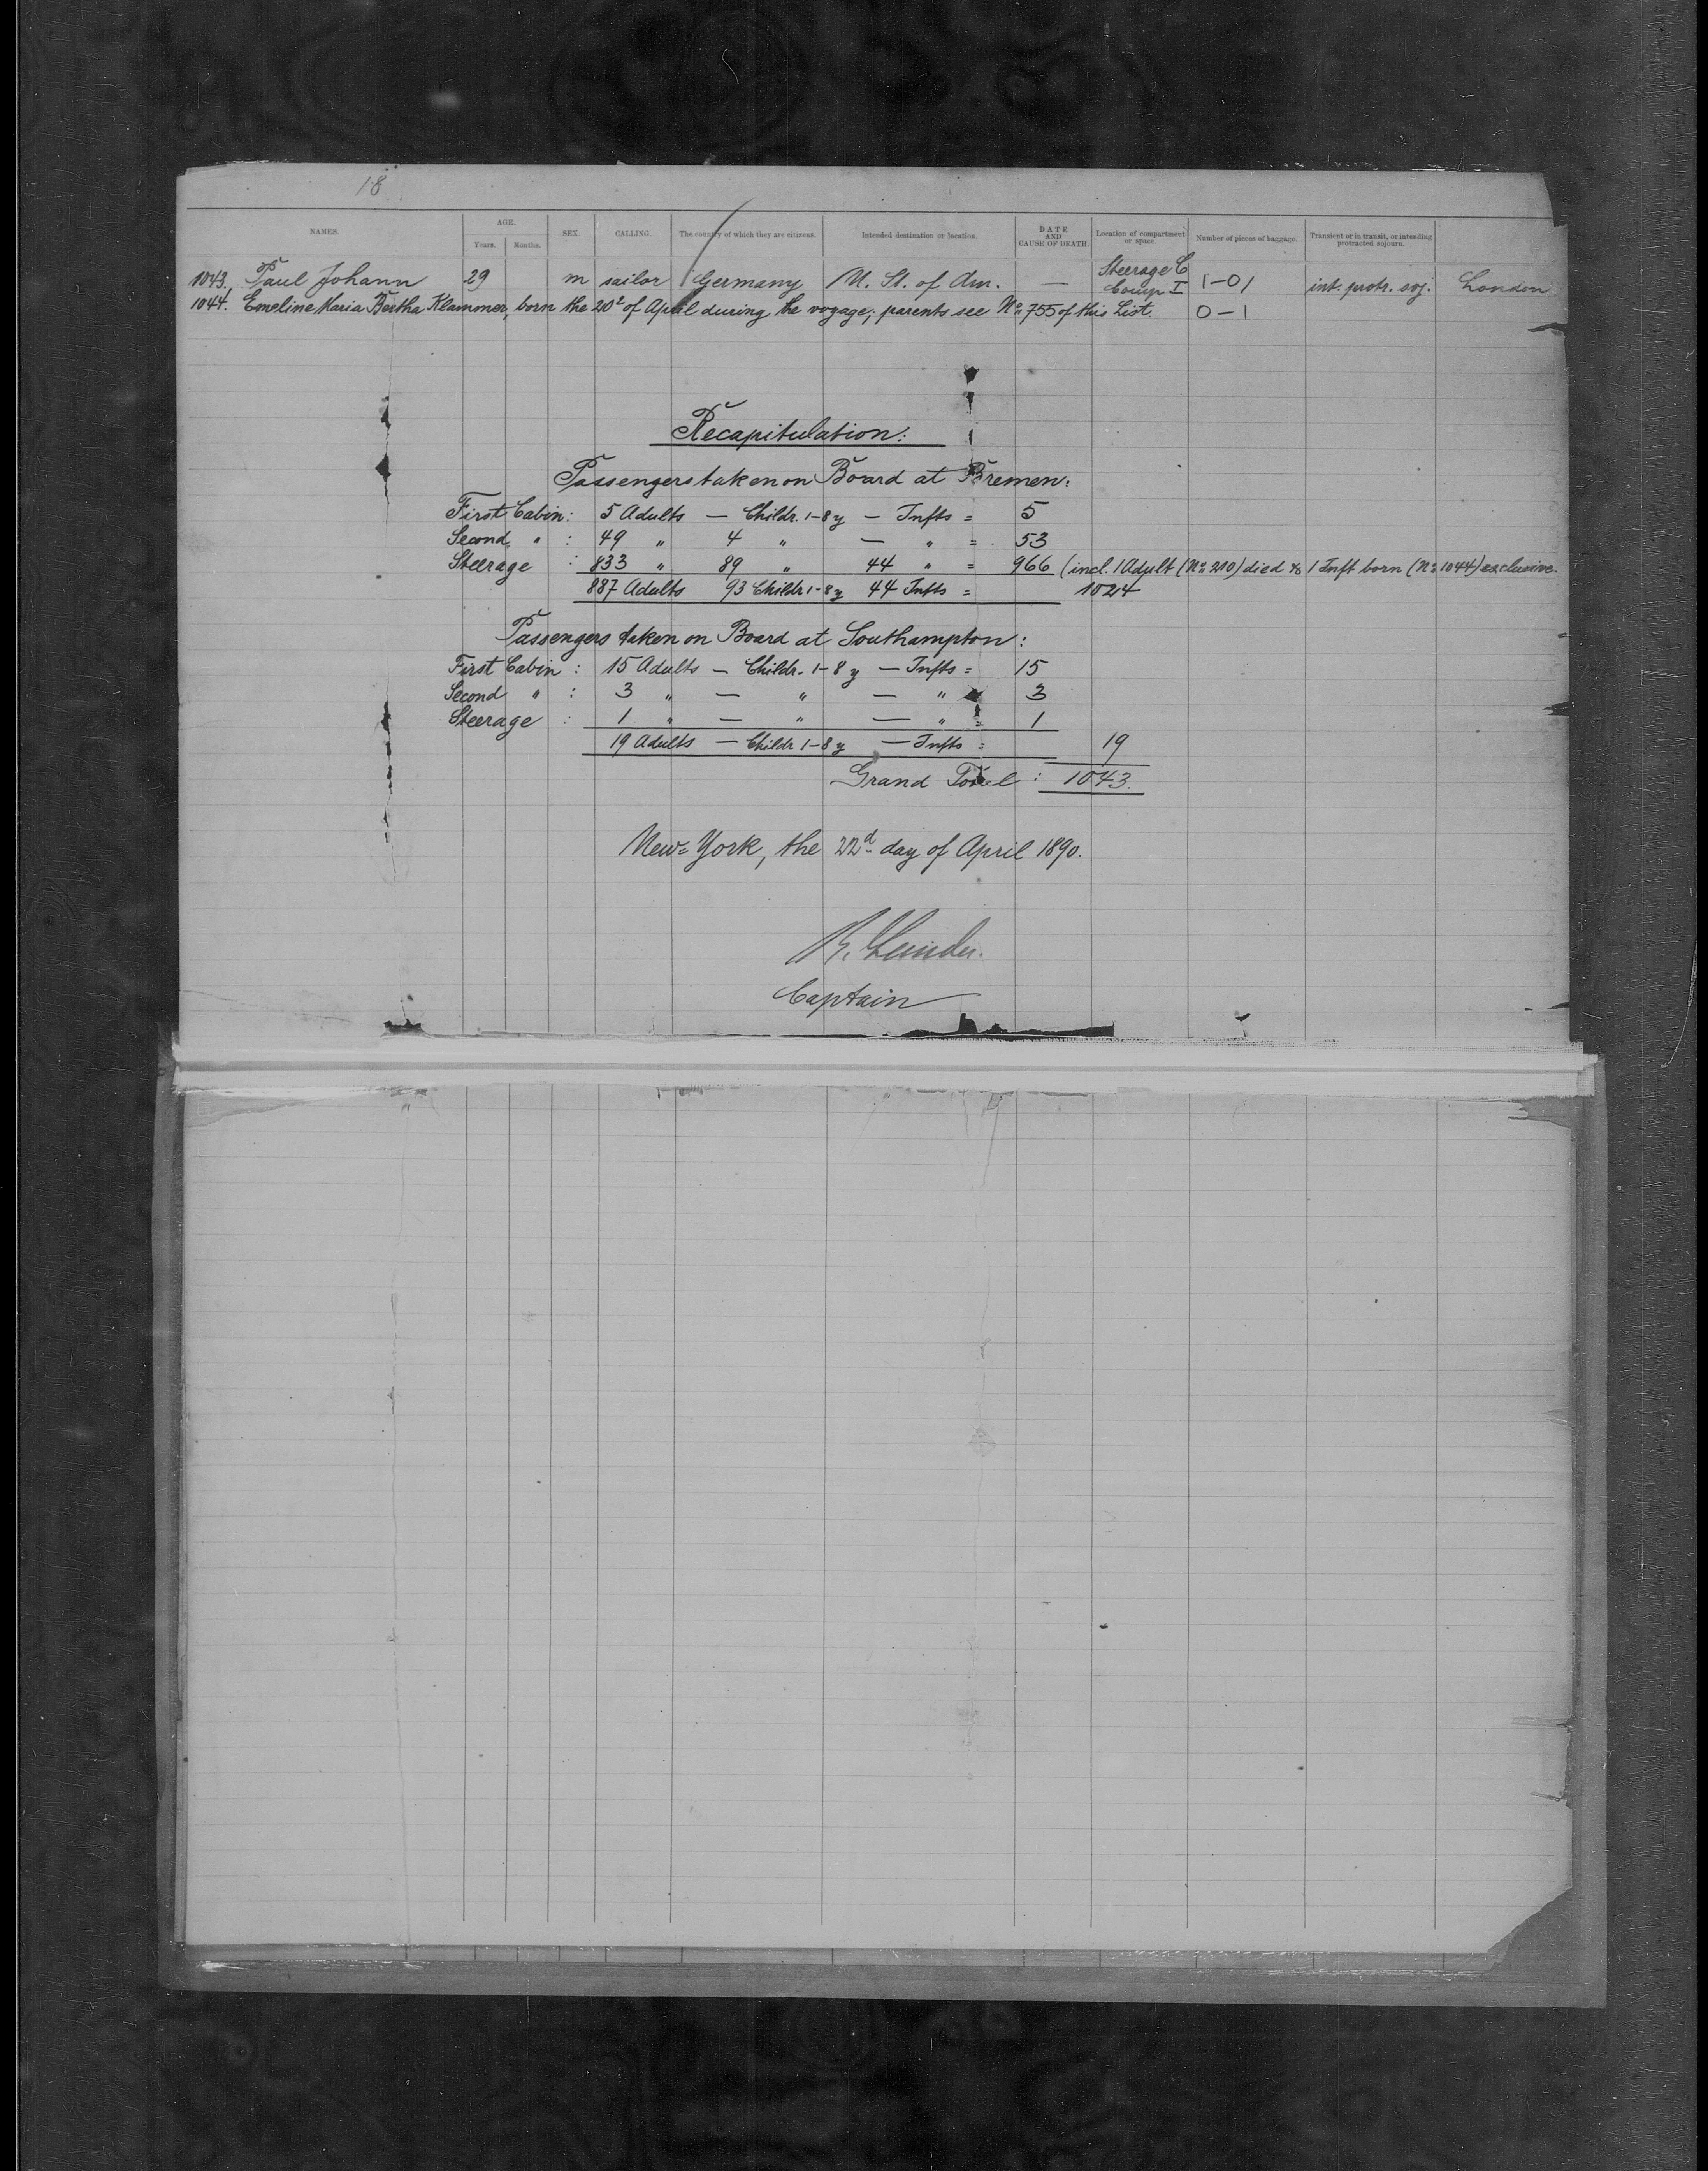 18
NAMES. AGE. Years. Months. SEX. CALLING. The country of which they are citizens. Intended destination or location. DATE AND CAUSE OF DEATH. Location of compartment or space. Number of pieces of baggage. Transient or in transit, or intending protracted sojourn.
1043. Paul Johann 29 m sailor Germany U. St. of Am. — Steerage C Comp I 1-01 int. protr. soj. London
1044. Emeline Maria Bertha Klammer, born the 20t of April during the voyage; parents see No 755 of this List. 0-1
Recapitulation:
Passengers taken on Board at Bremen:
First Cabin: 5 Adults — Childr. 1-8 y — Infts = 5
Second " : 49 " 4 " — " = 53
Steerage : 833 " 89 " 44 " = 966 (incl. 1 Adult (No 210) died & 1 Inft born (No 1044) exclusive.
887 Adults 93 Childr 1-8 y 44 Infts = 1024
Passengers taken on Board at Southampton:
First Cabin : 15 Adults — Childr. 1-8 y — Infts = 15
Second " : 3 " — " — " 3
Steerage : 1 " — " — " = 1
19 Adults — Childr 1-8 y — Infts = 19
Grand Total : 1043.
New=York, the 22d day of April 1890.
Captain